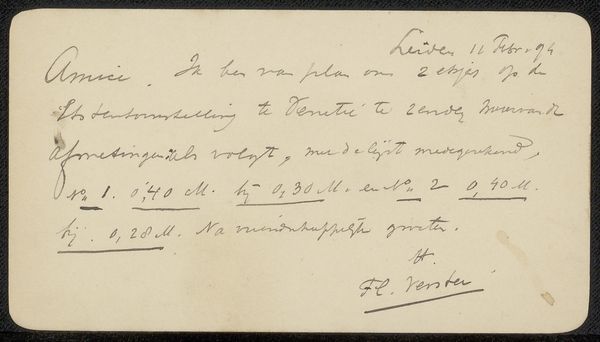 Leiden 11 Febr. 94
Amice. Ik ben van plan om 2 etsjes op de
tentoonstelling te Venetië te zenden waarvan de
afmetingen als volgt, met de lijst medegerekend,
No 1. 0,40 M. bij 0,30 M. en No 2 0,40 M.
bij 0,28 M. Na vriendschappelijke groeten.
tt.
Fl. Verster